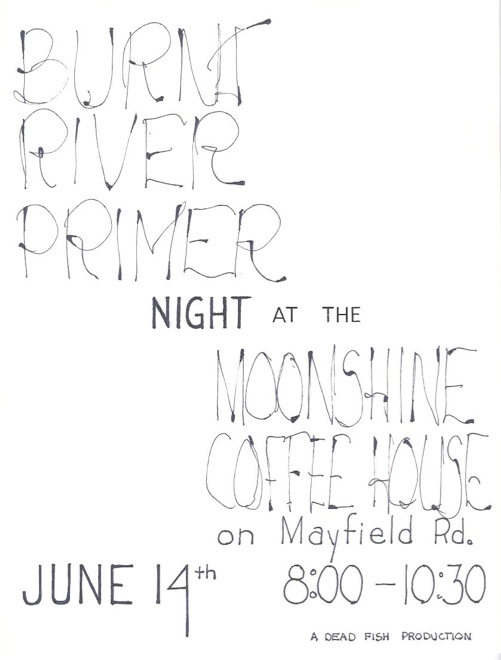 BURNT
RIVER
PRIMER
NIGHT AT THE
MOONSHINE
COFFEE HOUSE
on Mayfield Rd.
JUNE 14th 8:00-10:30
A DEAD FISH PRODUCTION